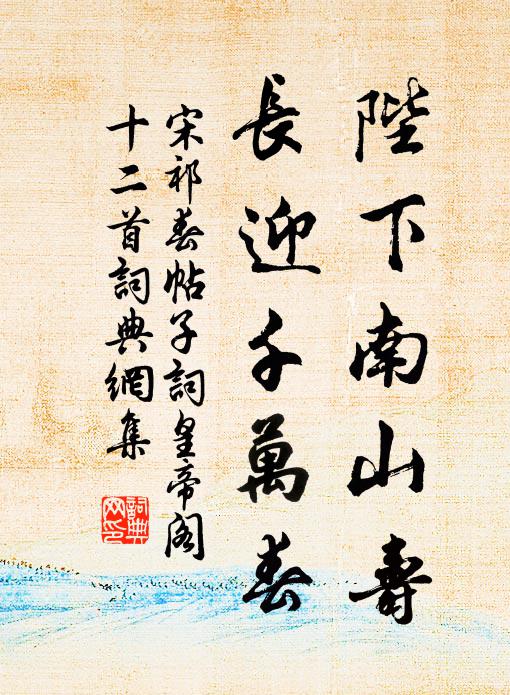 陛下南山壽
長迎千萬春
宋祁春帖子詞皇帝閣
十二首詞典網集
詞典網印